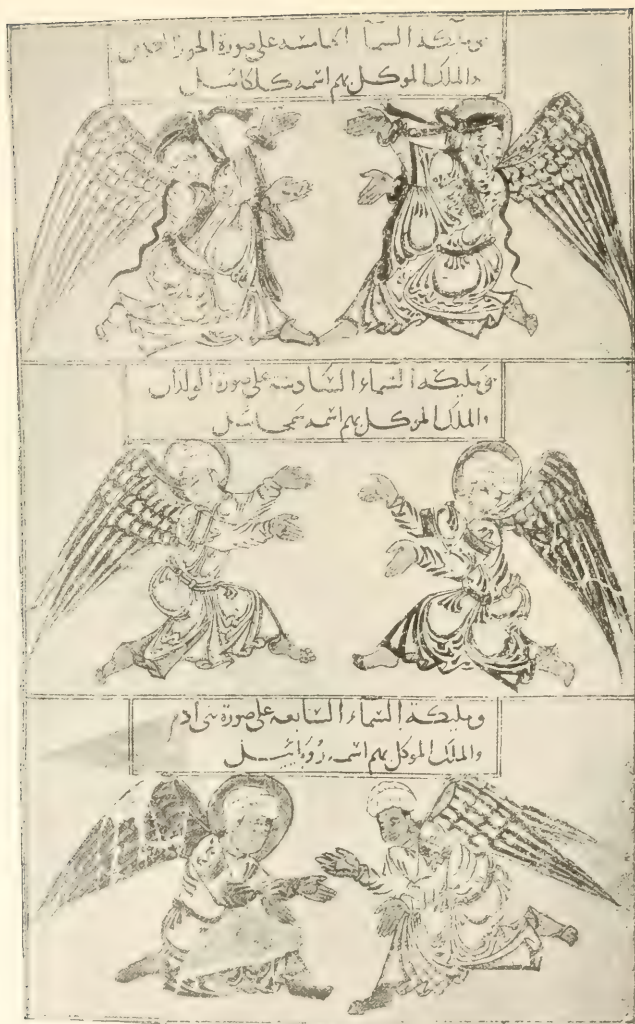 وملئكة السماء الخامسه على صورة الحور العين
والملك الموكل بهم اسمه كلكائيل
وملئكة السماء السادسه على صورة الولدان
والملك الموكل بهم اسمه سمحائيل
وملئكة السماء السابعه على صورة بنى ادم
والملك الموكل بهم اسمه روبائيل